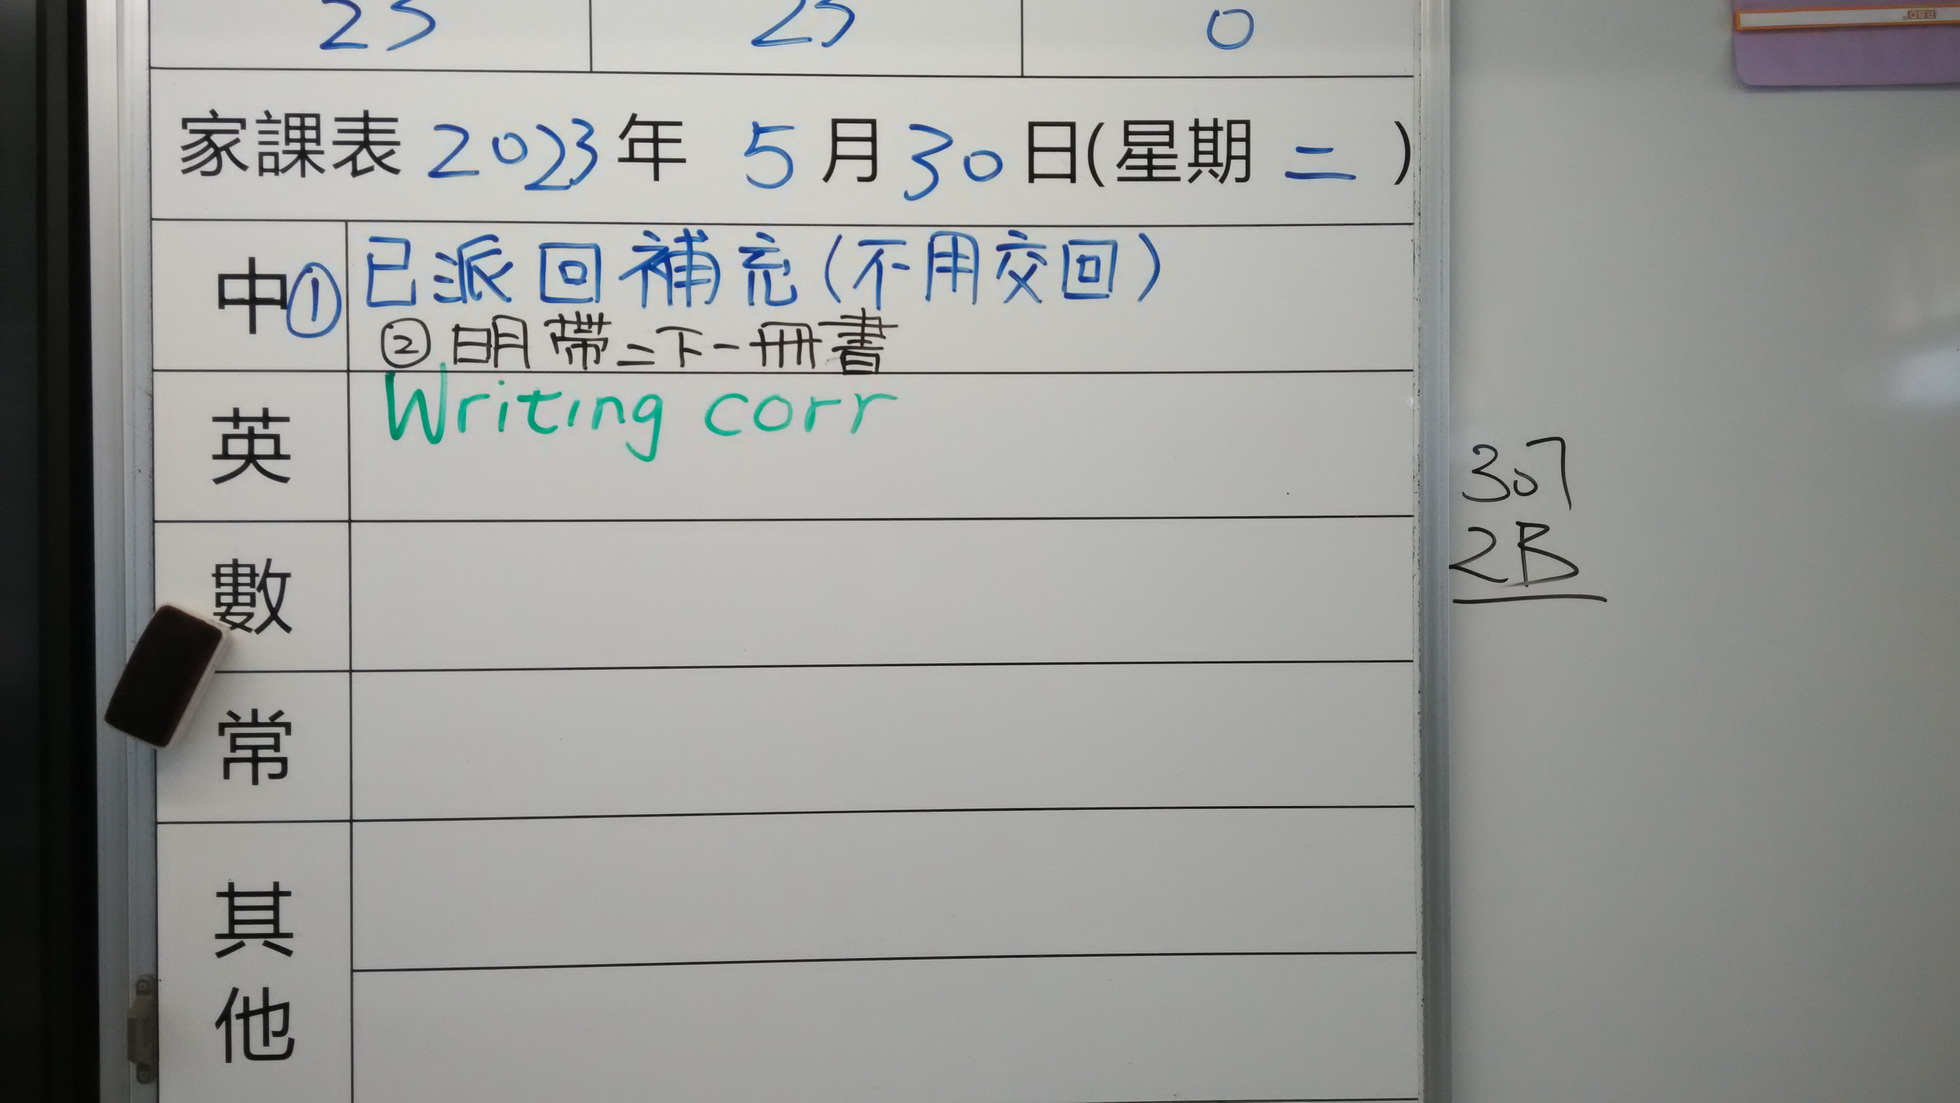 25 25 0
家課表 2023年 5月30日(星期二)
中 ① 已派回補充(不用交回)
② 明帶二下一冊書
英 Writing corr
數
常
其他
307
2B